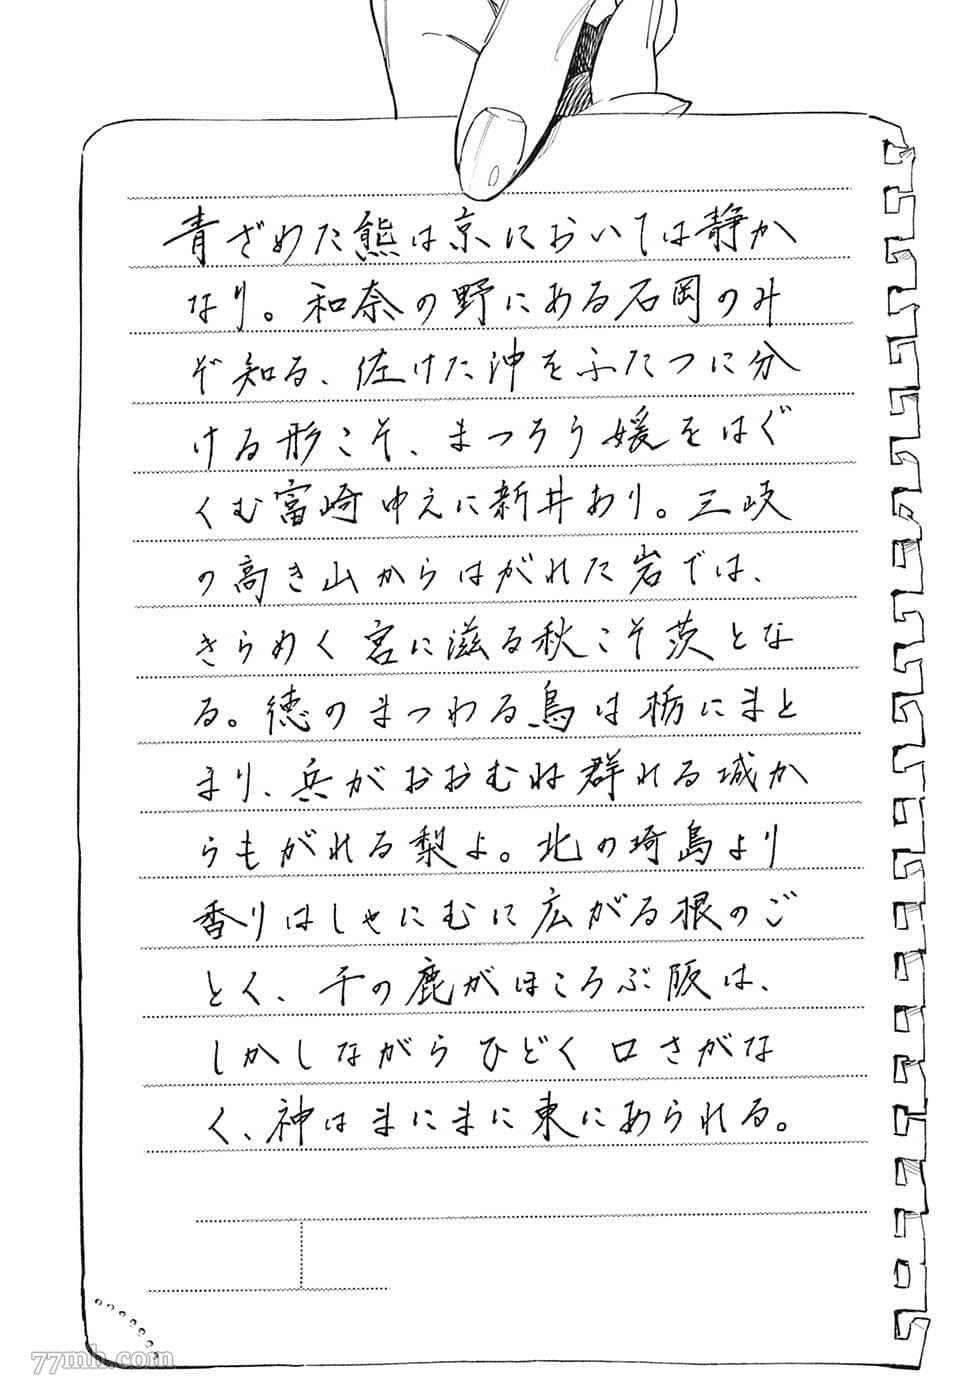 青ざめた熊は京においては静か
なり。和奈の野にある石岡のみ
ぞ知る、佐けた沖をふたつに分
ける形こそ、まつろう媛をはぐ
くむ富崎ゆえに新井あり。三岐
の高き山からはがれた岩では、
きらめく宮に滋る秋こそ茨とな
る。徳のまつわる鳥は栃にまと
まり、兵がおおむね群れる城か
らもがれる梨よ。北の埼島より
香りはしゃにむに広がる根のご
とく、千の鹿がほころぶ阪は、
しかしながらひどく口さがな
く、神はまにまに東にあられる。
77mh.com